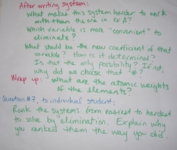 After writing system:
What makes this system harder to work with than the one in 6A?
Which variable is most "convenient" to eliminate?
What should be the new coefficient of that variable? How is it determined?
Is that the only possibility? If not, why did we choose that?
Wrap up: What are the atomic weights of the elements?
Question #7, to individual student:
Rank the systems from easiest to hardest to solve by elimination. Explain why you ranked them the way you did.